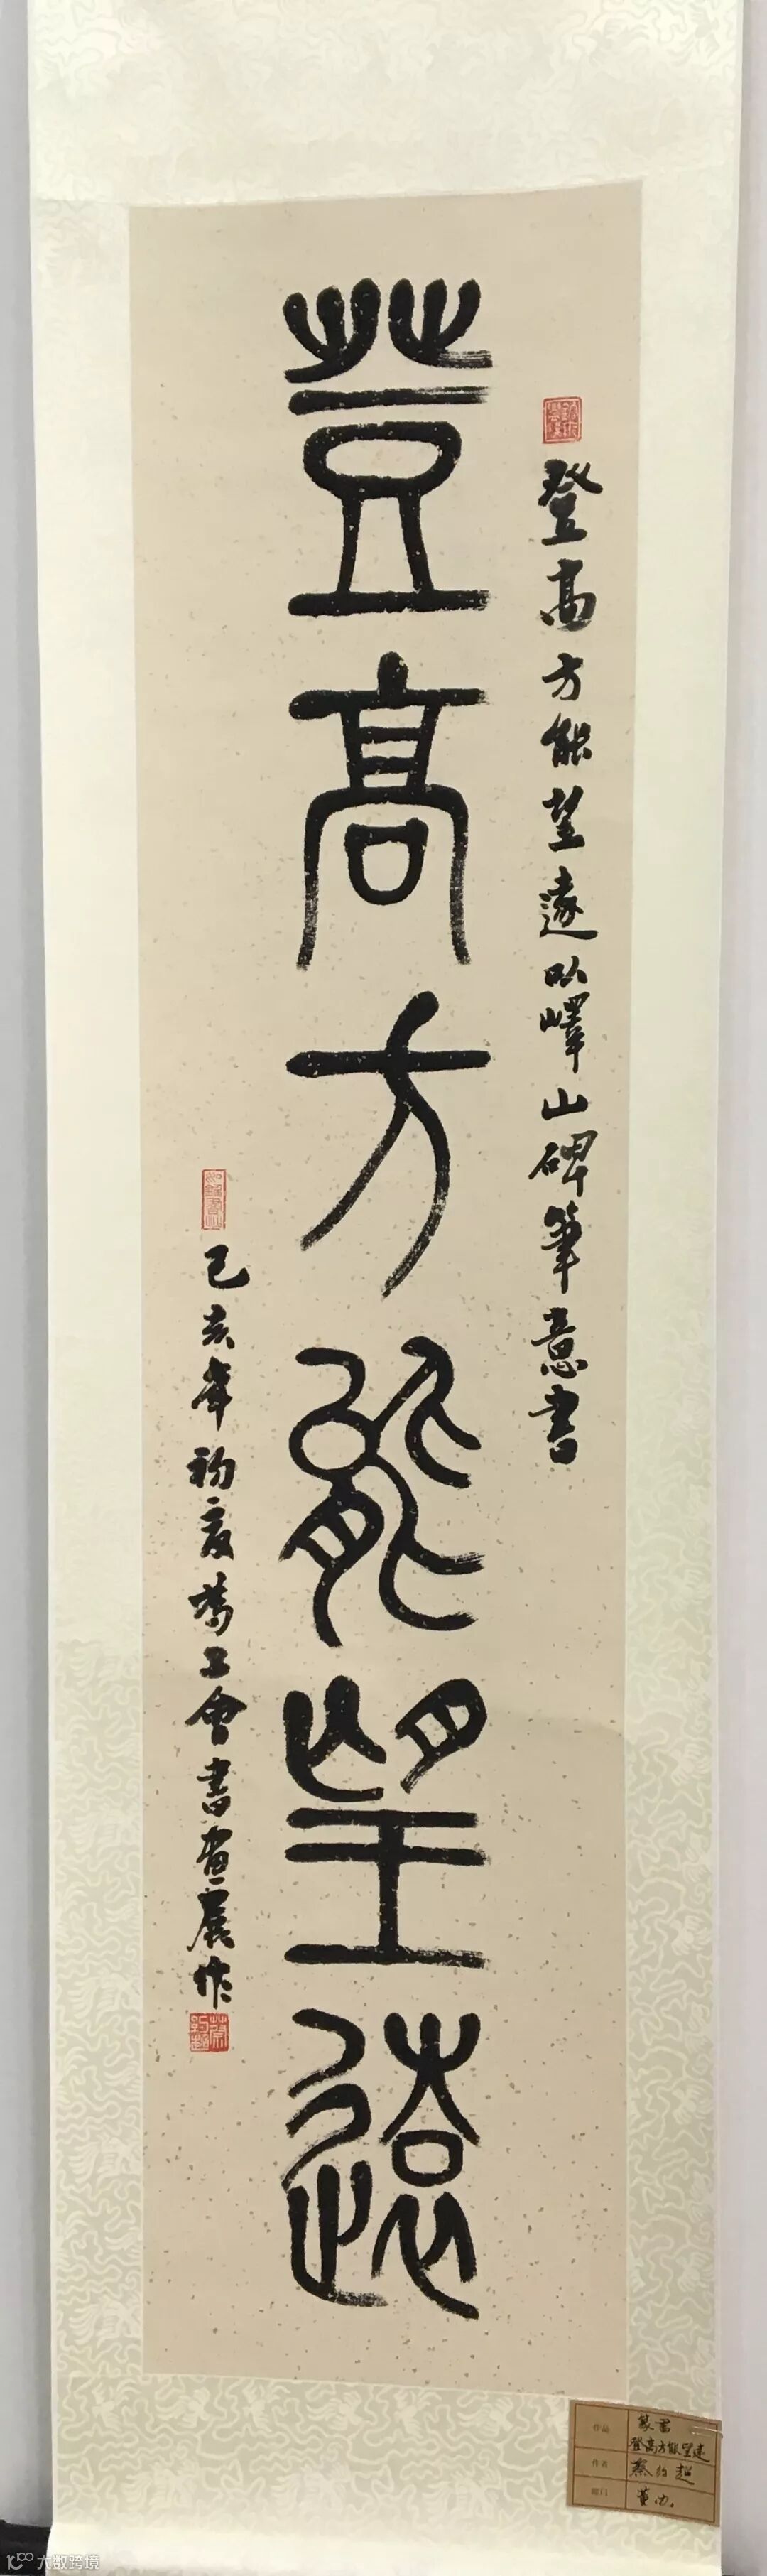 登高方能望遠以嶧山碑筆意書
登高方能望遠
己亥年初夏為工會書畫展作
作品 篆書
登高方能望遠
作者 蔡
部门 董办
大数跨境